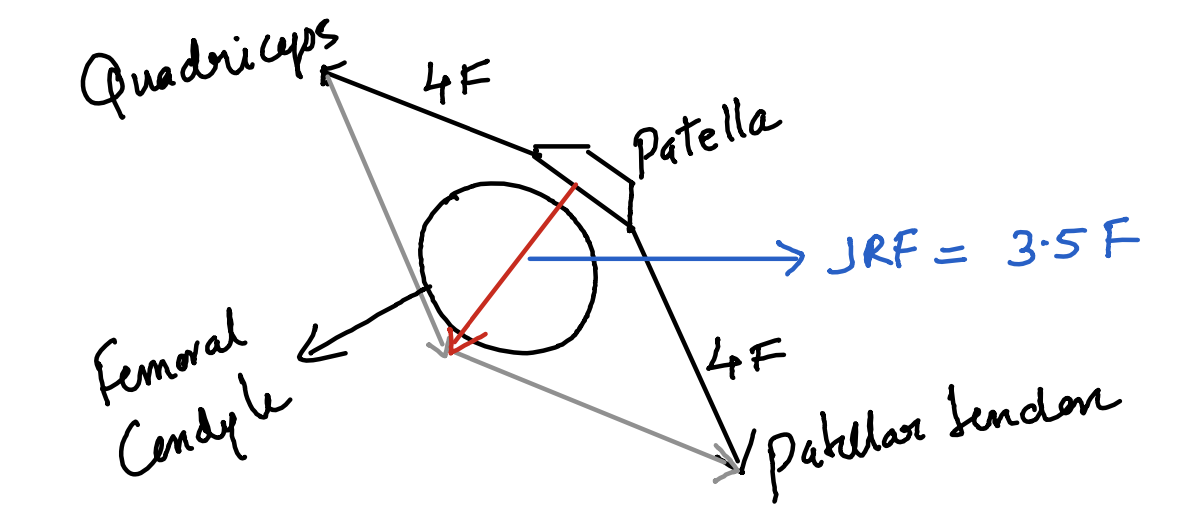 Quadriceps
4F
Patella
JRF = 3.5 F
Femoral
Condyle
4F
Patellar tendon